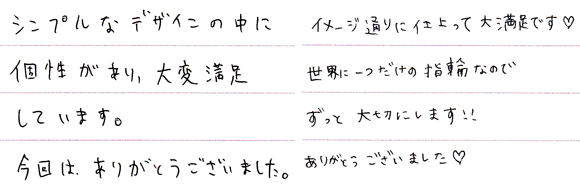 シンプルなデザインの中に
個性があり、大変満足
しています。
今回は、ありがとうございました。
イメージ通りに仕上って大満足です♡
世界に一つだけの指輪なので
ずっと大切にします!!
ありがとうございました♡